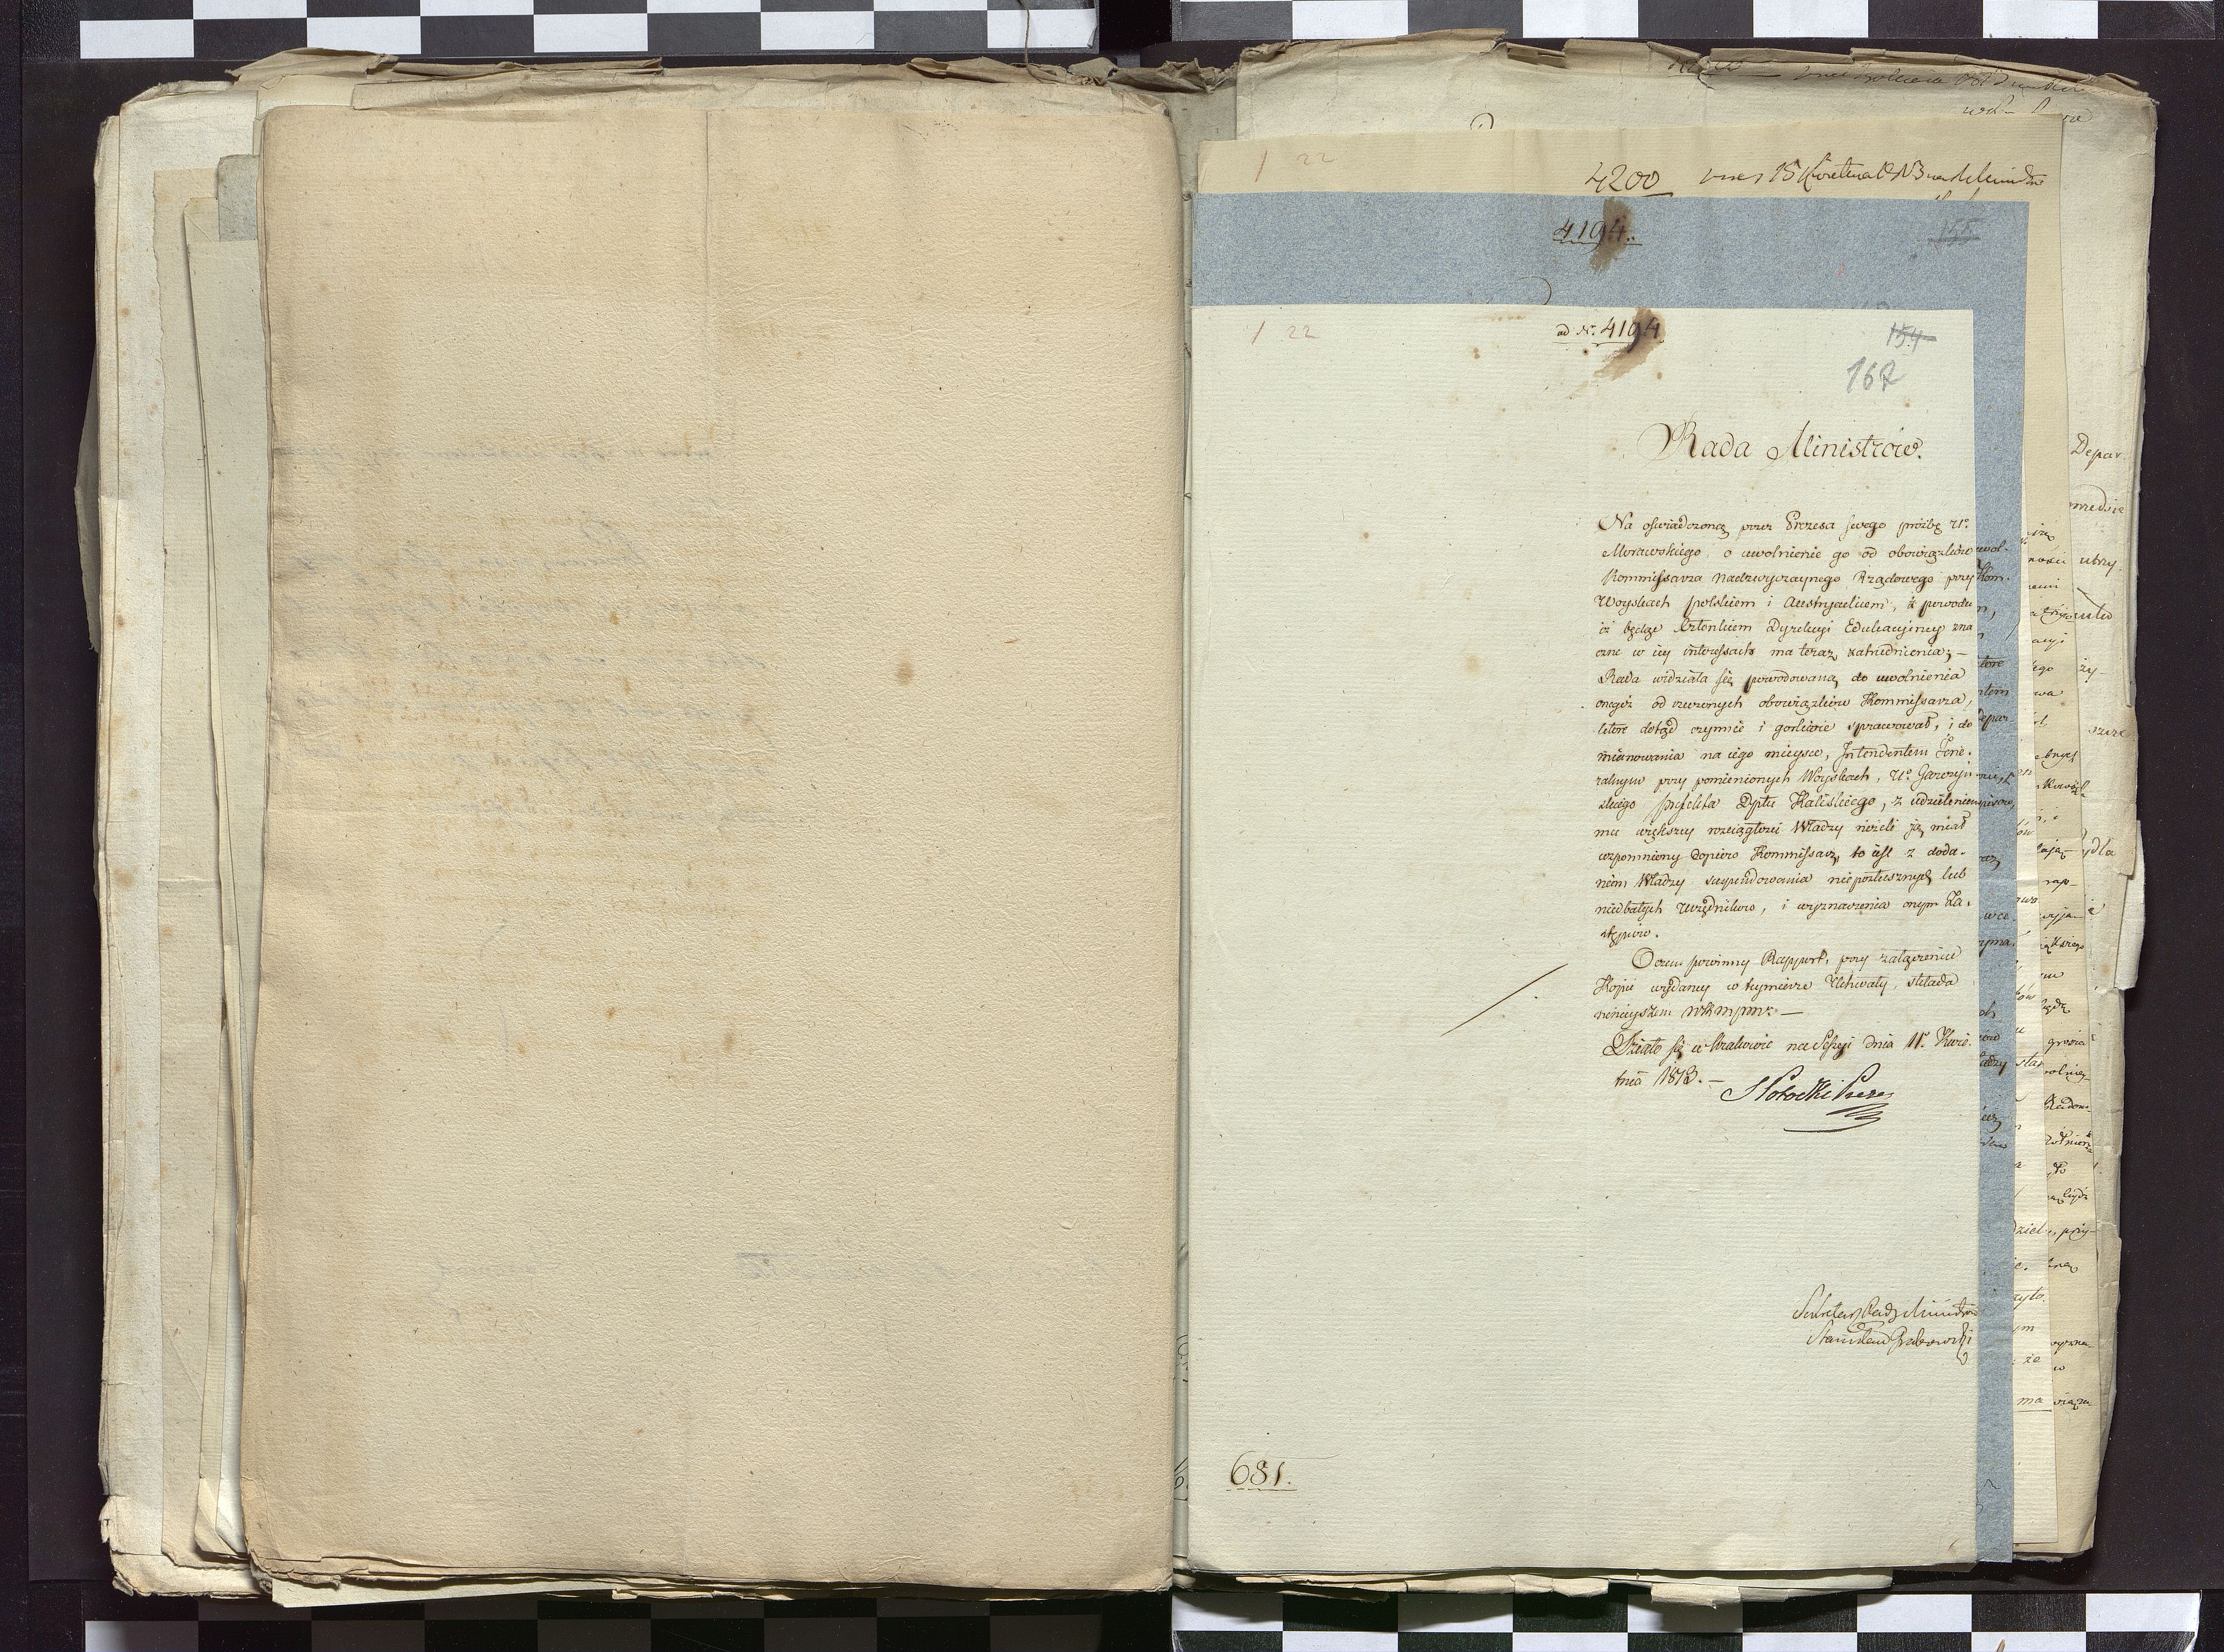 1 22
4200 15 Kwietnia 1813
4194.
155
1 22
ad Nº 4194
154
167
Rada Ministrów.
Na oświadczoną przez Prezesa swego prośbę Uº.
Morawskiego, o uwolnienie go od obowiązków
Kommissarza Nadzwyczaynego Rządowego przy
Woyskach polskiem i Austryackiem, z powodu
iż będąc Członkiem Dyrekcyi Edukacyiney zna
czne w iey interessach ma teraz zatrudnienia; —
Rada widziała się powodowaną do uwolnienia
onegoż od rzeczonych obowiązków Kommissarza,
które dotąd czynnie i gorliwie sprawował, i do
mianowania na iego mieysce, Intendentem Jene-
ralnym przy pomienionych Woyskach, Uº. Garczyń
skiego prefekta Dptu Kaliskiego, z udzieleniem
mu większey rozciągłości Władzy niżeli ją miał
wspomniony dopiero Kommissarz, to iest z doda-
niem Władzy suspendowania nieposłusznych lub
niedbałych Urzędników, i wyznaczenia onym Za-
stępców.
O czem powinny Rapport, przy załączeniu
Kopii wydaney w tymierze Uchwały, składa
ninieyszem
Działo się w Krakowie na Sessyi dnia 11º. Kwie-
tnia 1813. —
S Potocki Prezes
Sekretarz Rady Ministrów
Stanisław Grabowski
681.